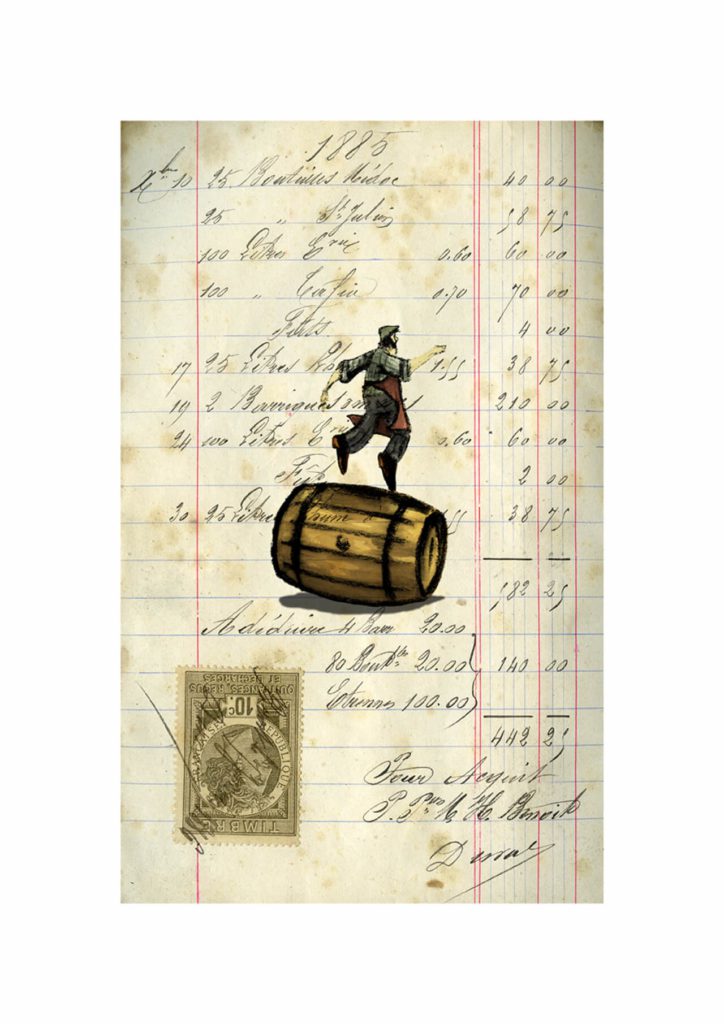 1885
Xbre 10 25 Bouteilles Médoc 40 00
25 " St Julien 58 75
100 Litres 0.60 60 00
100 " Tafia 0.70 70 00
Fûts. 4 00
17 25 Litres 1.55 38 75
19 2 Barriques 210 00
24 100 Litres 0.60 60 00
Fût 2 00
30 25 Litres Rhum 55 38 75
582 25
A déduire 4 Barr 20.00
80 Boutlles 20.00 140 00
Etrennes 100.00
442 25
Pour Acquit
P. Pon M. H. Benoit
QUITTANCES, REÇUS
ET DÉCHARGES
10c
RÉPUBLIQUE FRANÇAISE
TIMBRE